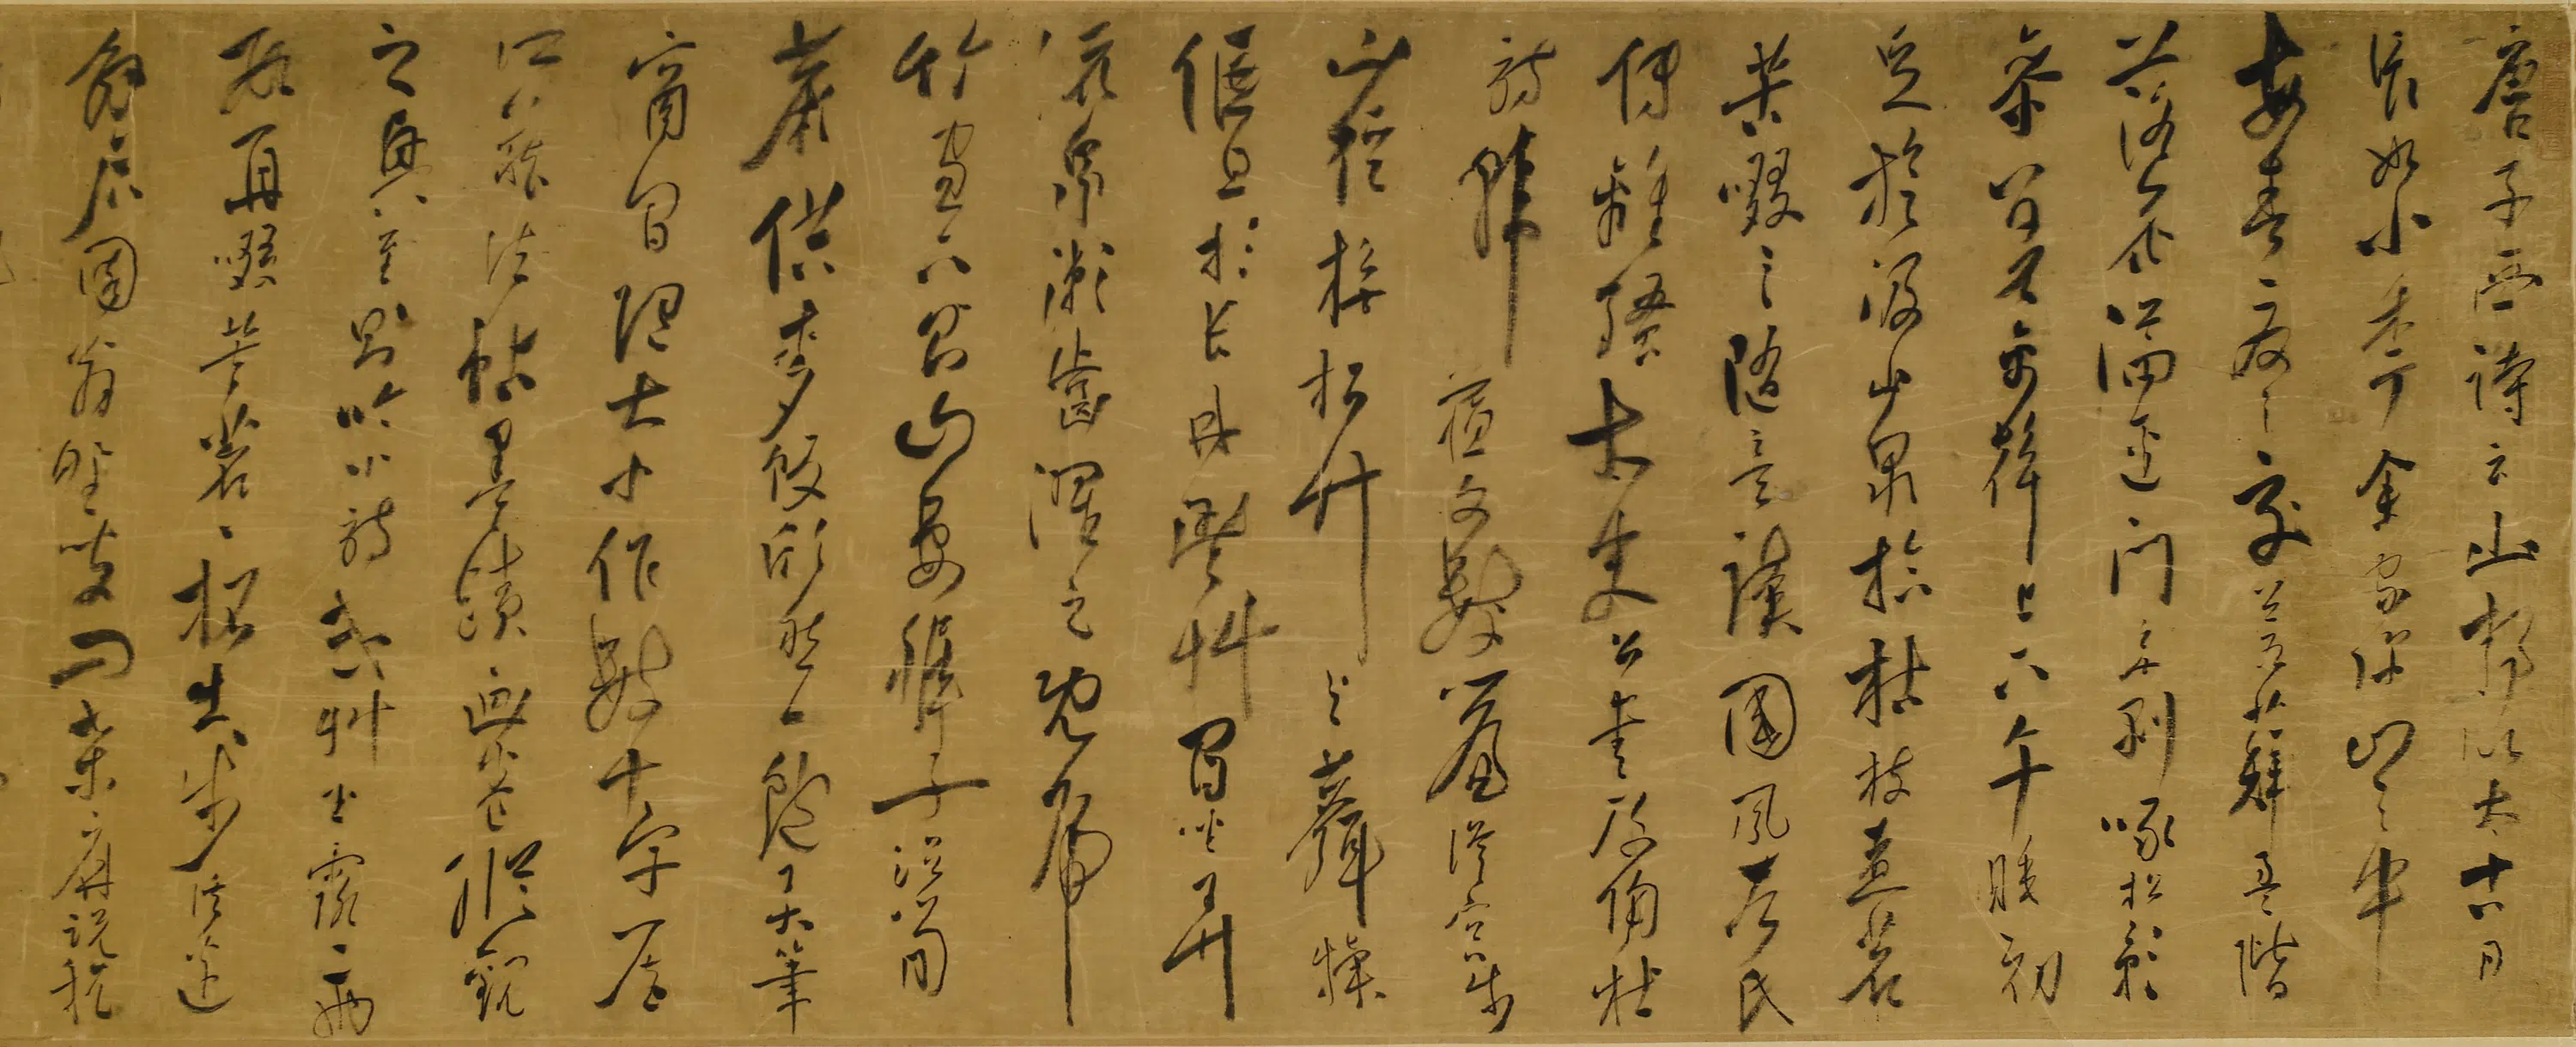 唐子西詩云山靜似太古日
長如小年余家深山之中
每春夏之交蒼蘚盈階
落花滿逕門無剝啄松影
參差禽聲上下午睡初
足旋汲山泉拾枯枝煮苦
茗啜之隨意讀國風左氏
傳離騷太史公書及陶杜
詩韓蘇文數篇從容步
山徑撫松竹與麛犢
偃息於長林豐草間坐弄
流泉漱齒濯足既歸
竹窗下則山妻稚子作筍
蕨供麥飯欣然一飽弄筆
窗間隨大小作數十字展
所藏法帖墨蹟畫卷縱觀
之興至則吟小詩或草玉露一兩
段再啜苦茗一杯出步溪邊
解后園翁野叟問桑麻說秔